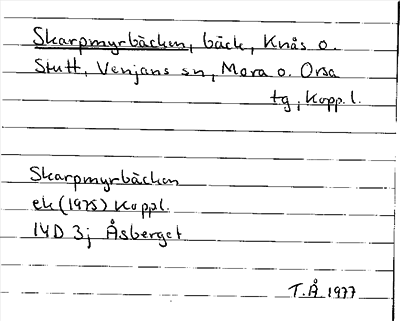 Skarpmyrbäcken, bäck, Knås o.
Stutt, Venjans sn, Mora o. Orsa
tg, Kopp. l.
Skarpmyrbäcken
ek (1975) Koppl.
14D 3j Åsberget
T.Å 1977